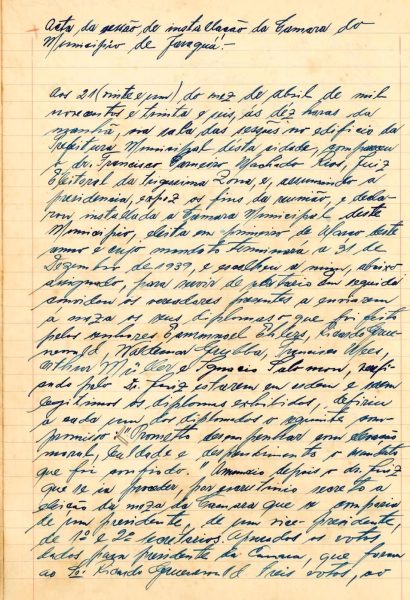 Acta da sessão de installação da Camara do
Municipio de Jaraguá.-
Aos 21 (vinte e um) do mez de abril de mil
novecentos e trinta e seis, ás déz horas da
manhã, na sala das sessões no edificio da
Prefeitura Municipal desta cidade, compareceu
o dr. Francisco Carneiro Machado Rios, Juiz
Eleitoral da Zona e, assumindo a
presidencia, expoz os fins da reunião, e decla-
rou installada a Camara Municipal deste
Municipio, eleita em primeiro de Março deste
anno e cujo mandato terminará a 31 de
Dezembro de 1939, e escolheu a mim, abaixo
assignado, para servir de Em seguida
convidou os vereadores presentes a enviarem
á meza os seus diplomas o que foi feito
pelos senhores Emmanuel Ehlers, Ricardo Grue-
newald, Waldemar Grubba, Francisco
Arthur Müller e Ignacio verifi-
cando pelo Dr. Juiz estarem em ordem e serem
legitimos os diplomas exhibidos, deferiu
a cada um dos diplomados o seguinte com-
promisso: "Prometto desempenhar com elevação
moral, lealdade e desprendimento o mandato
que foi confiado." Annuncia depois o dr. Juiz
que se ia proceder, por escrutinio secreto a
eleição da meza da Camara que se comporia
de um presidente, de um vice-presidente,
de 1º e 2º secretarios. Apurados os votos
dados para presidente da Camara, que foram
ao Sr. Ricardo Gruenewald treis votos, ao